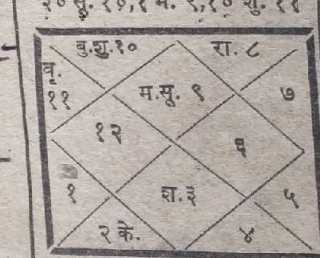 बु.शु.१० रा. ८
वृ.
११ म.सू. ९ ७
१२ ६
१ श.३ ५
२ के. ४